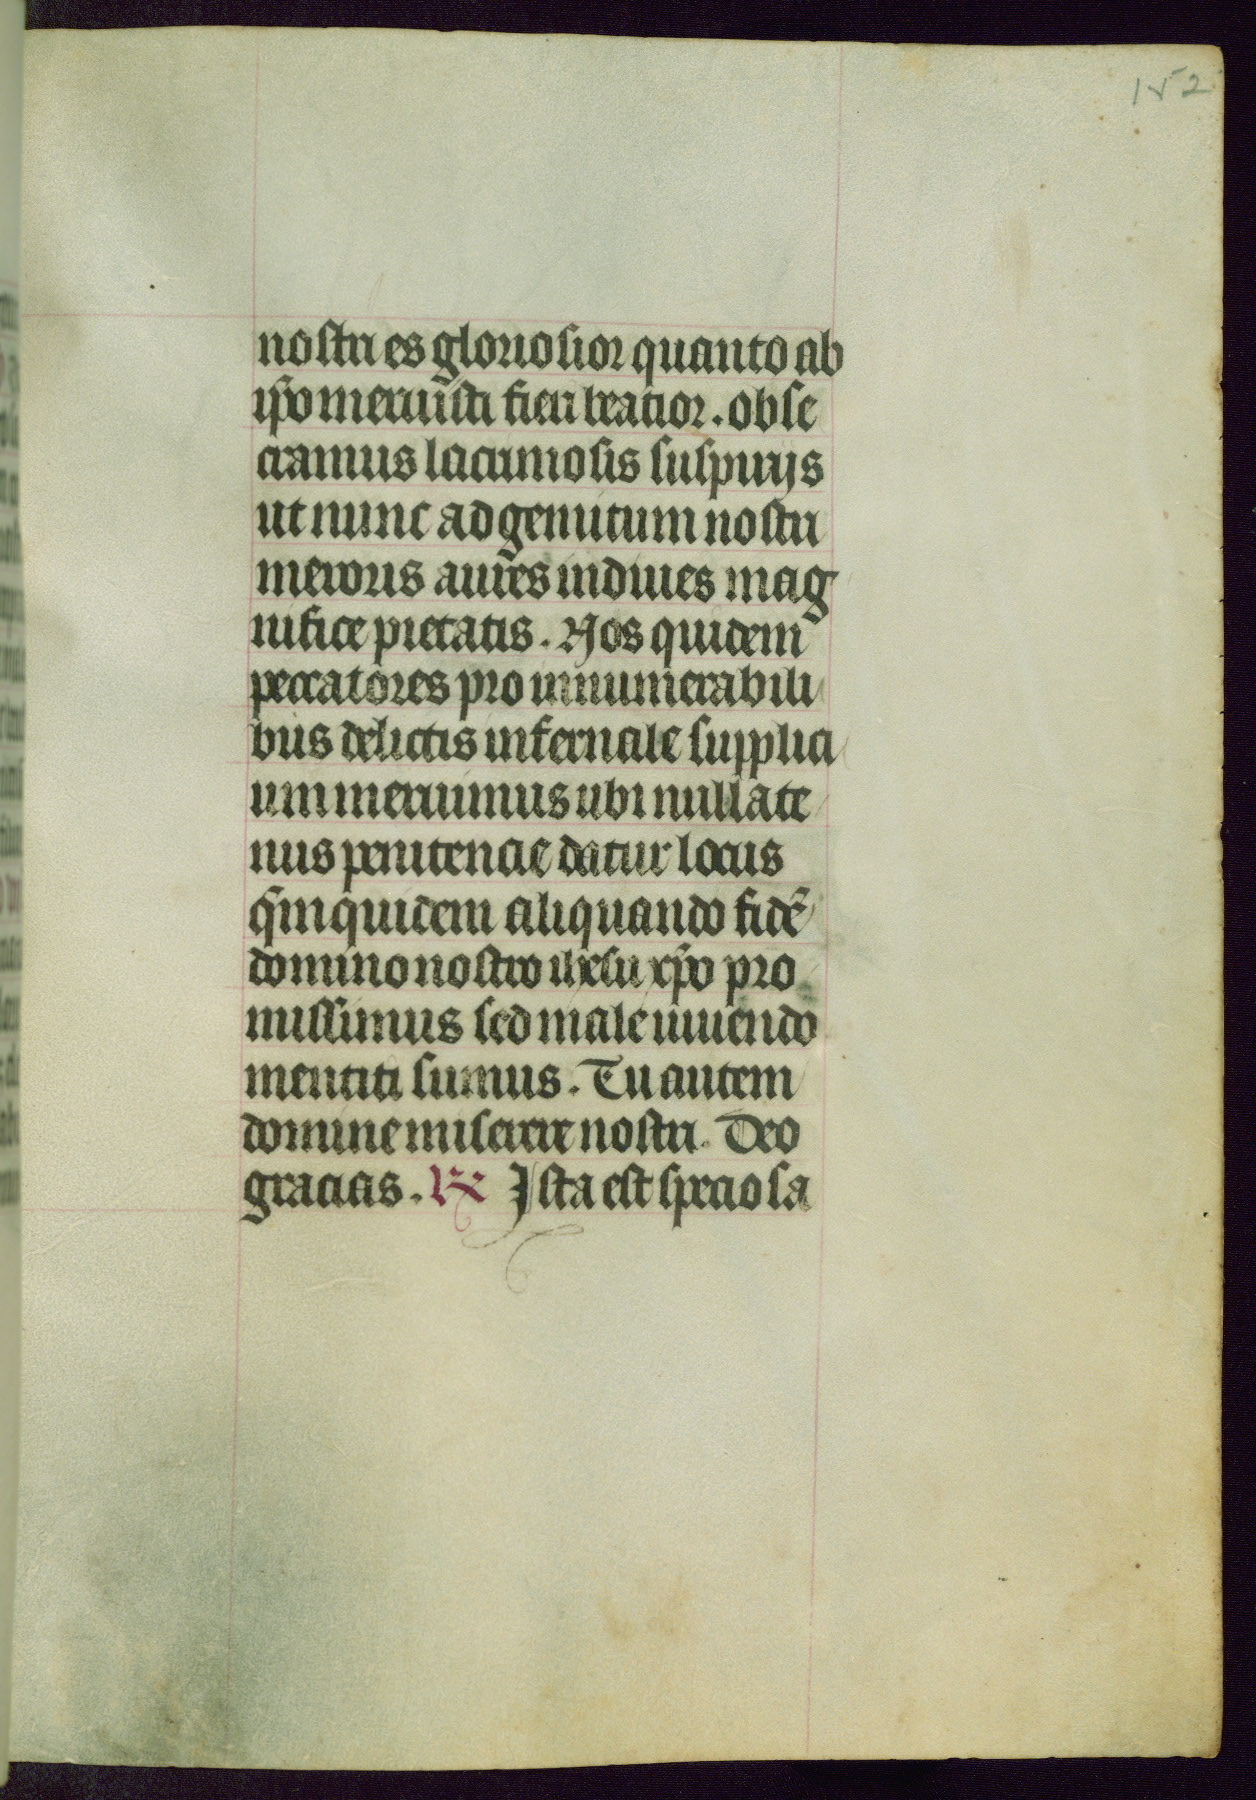 152
nostri es gloriosior quanto ab
ip̄o meruisti fieri beatior. obse
cramus lacrimosis suspirijs
ut nunc ad gemitum nostri
meroris aures inclines mag
nifice pietatis. Nos quidem
peccatores pro innumerabili
bus delictis infernale supplici
um meruimus ubi nullate
nus penitencie datur locus
qm̄ quidem aliquando fidē
domino nostro ihesu xp̄o pro
missimus sed male uiuendo
mentiti sumus. Tu autem
domine miserere nostri. Deo
gracias. ℟ Ista est speciosa